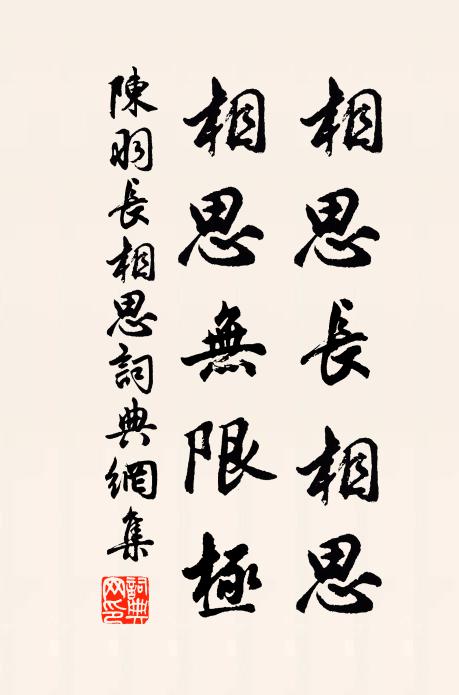 相思長相思
相思無限極
陳羽長相思詞典網集
詞典网印